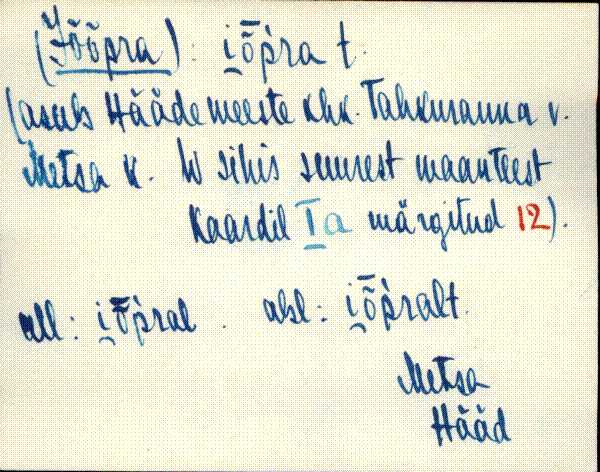 (Jõõpra): i̯ȭp̀ra t.
(asub Häädemeeste khk. Tahkuranna v.
Metsa k. W sihis suurest maanteest
Kaardil Ia märgitud 12).
all: i̯ȭp̀ral. abl: i̯ȭp̀ralt.
Metsa
Hääd